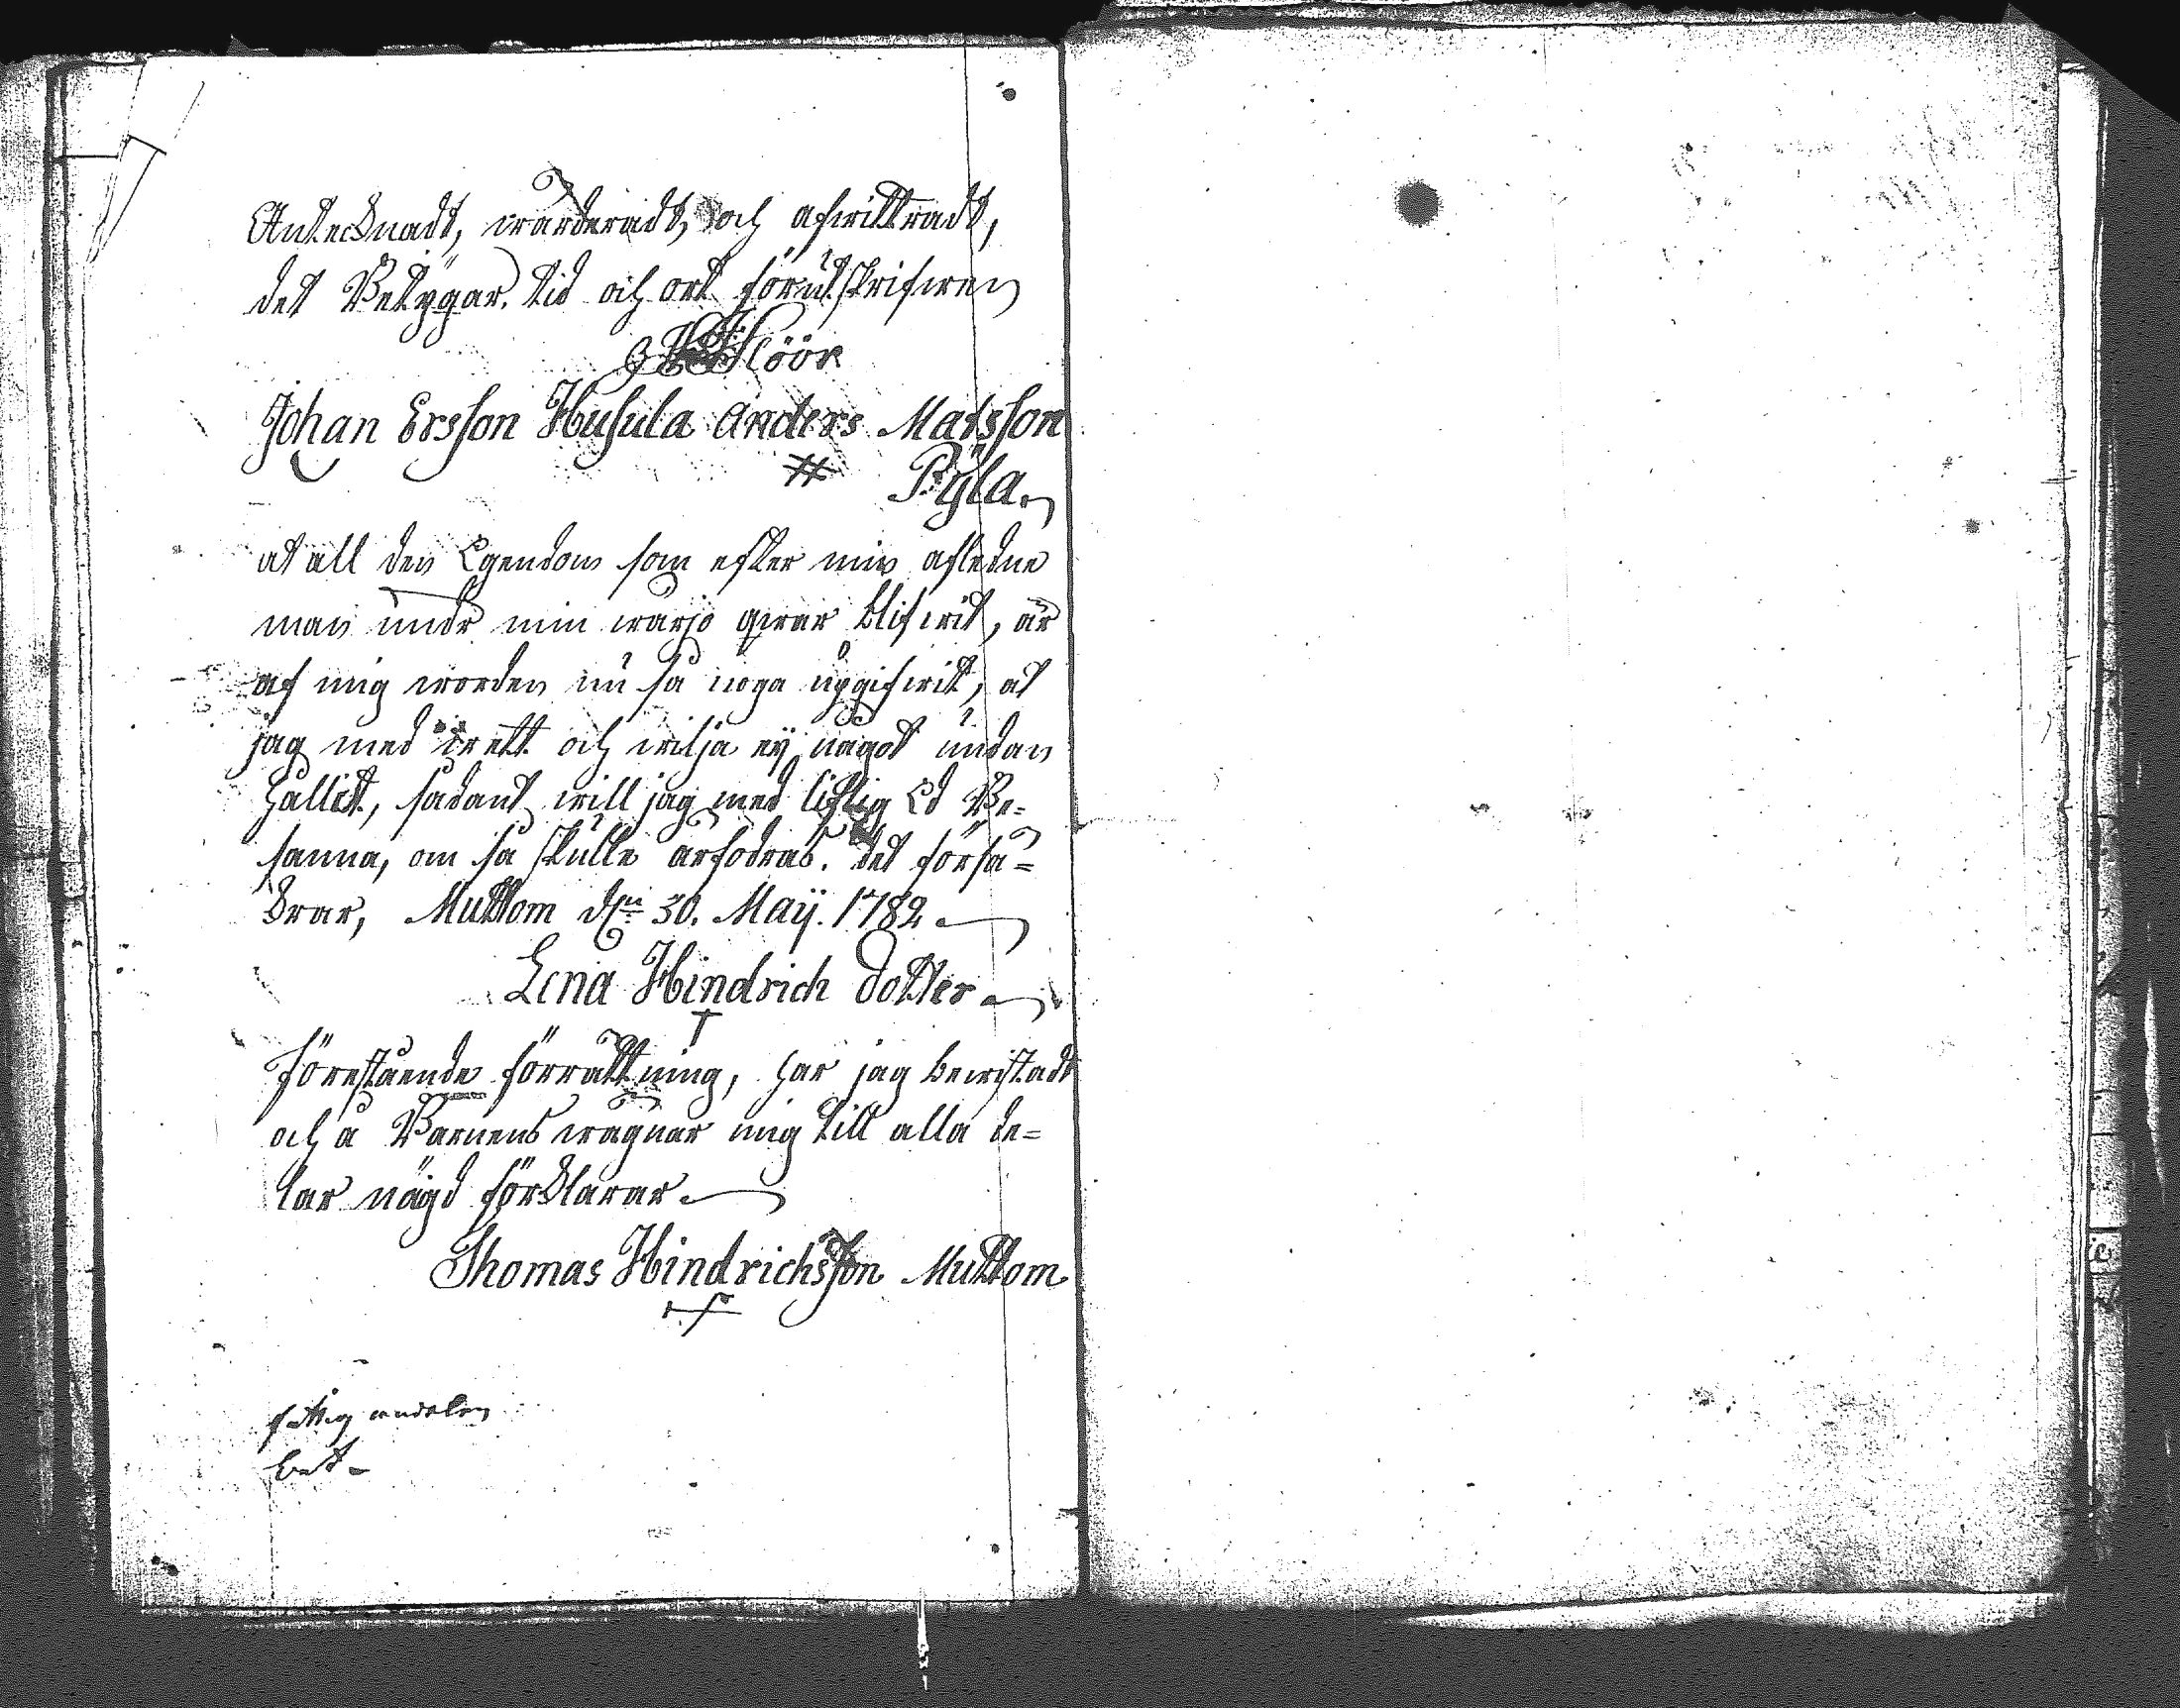 Antecknadt, wärderadt, och afwittradt,
det Betygar. tid och ort förutskrifwen
Flöör
Johan Ersson Husula Anders Matsson
Pyla.
at all den Egendom som efter min afledne
man undr min wärjo qwar blifwit, är
af mig worden nu så noga uppgifwit, at
jag med wett och wilja ej något undan
hållit, sådant will jag med liflig Ed Be-
sanna, om så skulle ärfodras. det försä-
krar, Muttom d. 30. Maij. 1782
Lena Hindrich dotter
Förestående förrättning, har jag bewistadt
och å Barnens wägnar mig till alla de-
lar nögd förklarar
Thomas Hindrichsson Muttom
fattig andelen
bet-